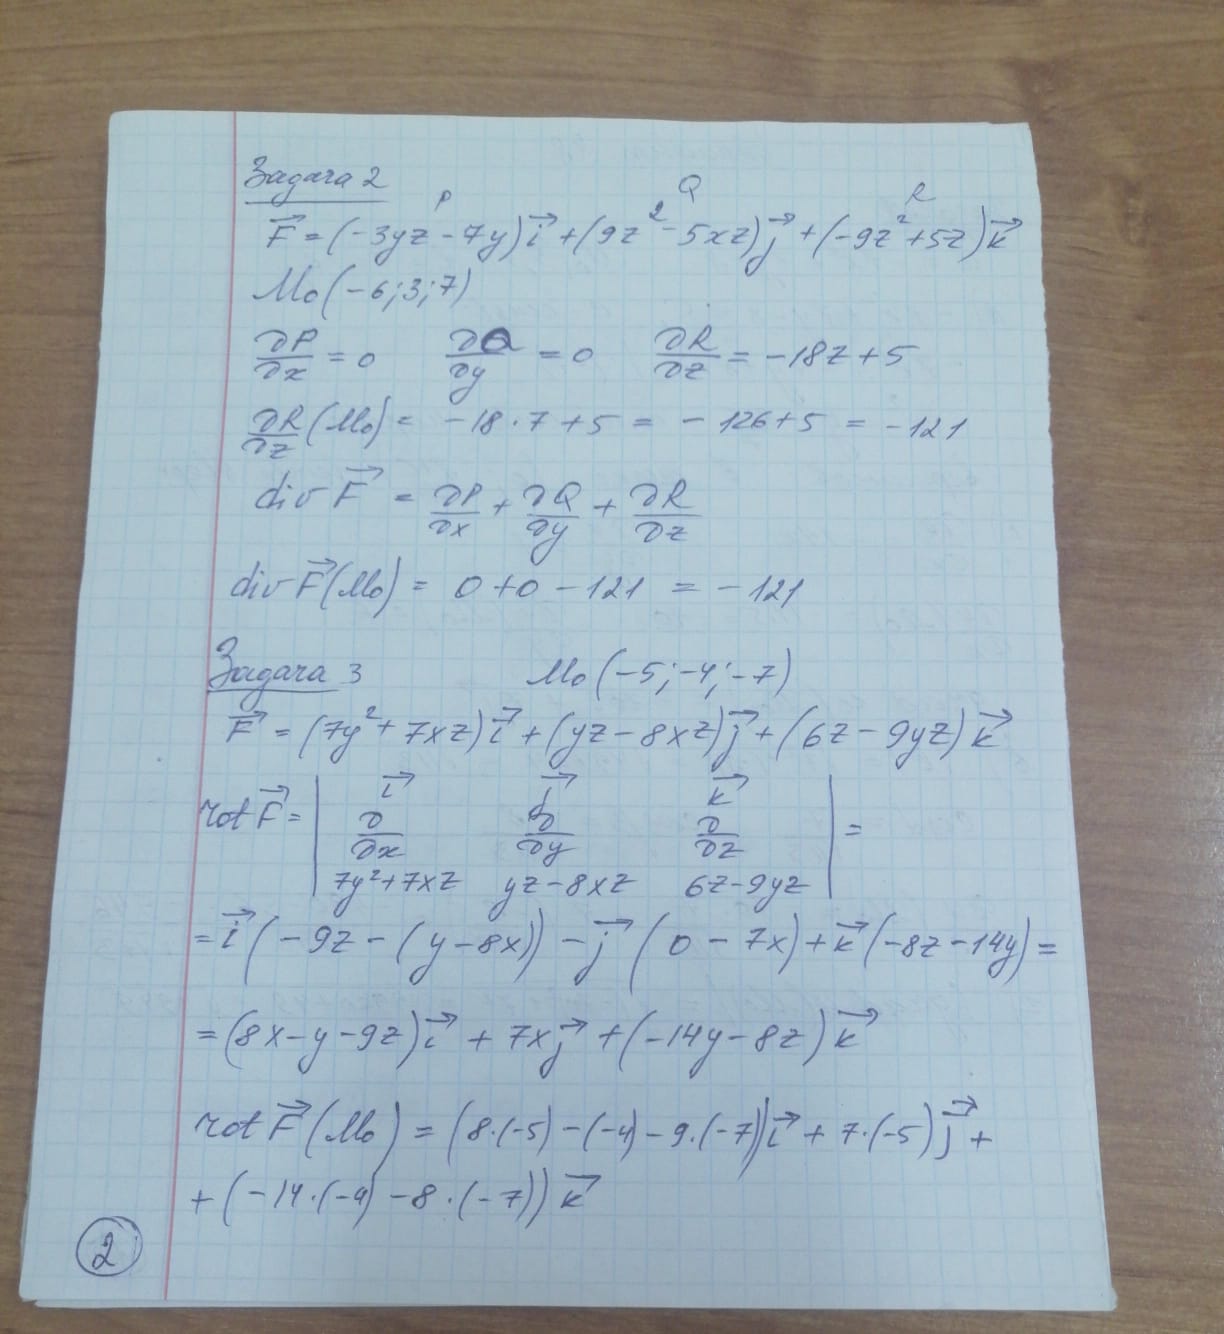 Задача 2
P Q R
F⃗ = (-3yz - 7y)i⃗ + (9z² - 5xz)j⃗ + (-9z² + 5z)k⃗
M₀(-6; 3; 7)
∂P/∂x = 0 ∂Q/∂y = 0 ∂R/∂z = -18z + 5
∂R/∂z (M₀) = -18·7 + 5 = -126 + 5 = -121
div F⃗ = ∂P/∂x + ∂Q/∂y + ∂R/∂z
div F⃗(M₀) = 0 + 0 - 121 = -121
Задача 3 M₀(-5; -4; -7)
F⃗ = (7y² + 7xz)i⃗ + (yz - 8xz)j⃗ + (6z - 9yz)k⃗
rot F⃗ = | i⃗ j⃗ k⃗ |
| ∂/∂x ∂/∂y ∂/∂z | =
| 7y²+7xz yz-8xz 6z-9yz |
= i⃗(-9z - (y - 8x)) - j⃗(0 - 7x) + k⃗(-8z - 14y) =
= (8x - y - 9z)i⃗ + 7xj⃗ + (-14y - 8z)k⃗
rot F⃗(M₀) = (8·(-5) - (-4) - 9·(-7))i⃗ + 7·(-5)j⃗ +
+ (-14·(-4) - 8·(-7))k⃗
2